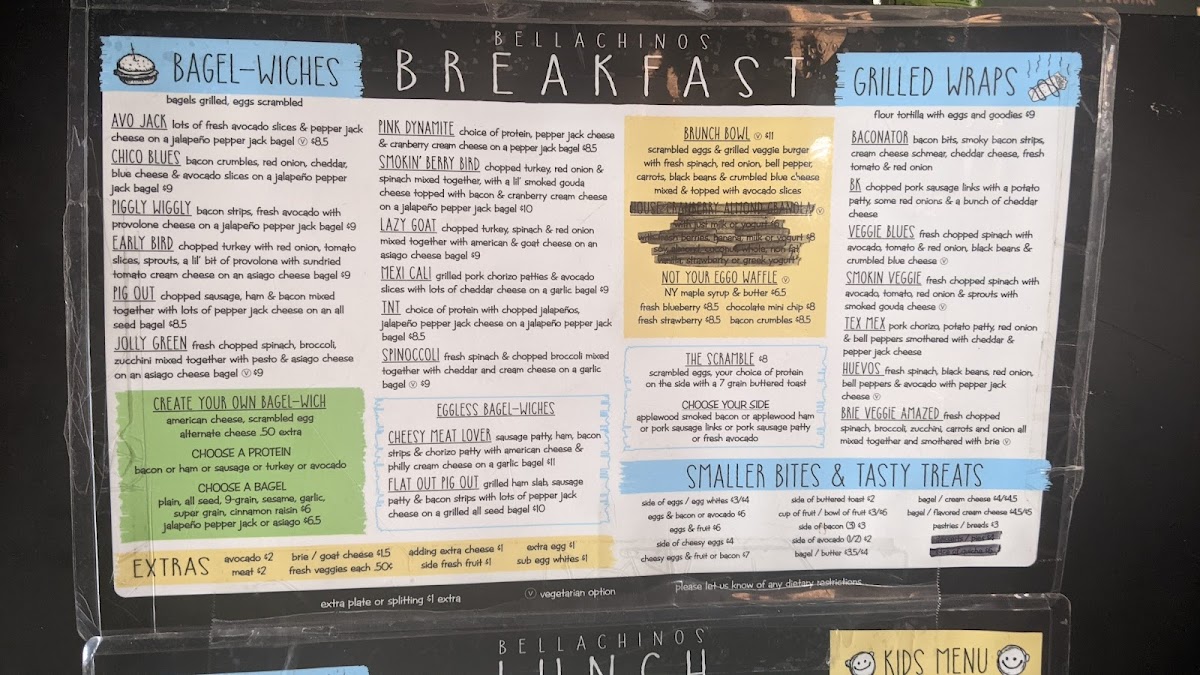 BELLACHINOS
BREAKFAST
BAGEL-WICHES
bagels grilled, eggs scrambled
AVO JACK lots of fresh avocado slices & pepper jack
cheese on a jalapeño pepper jack bagel Ⓥ $8.5
CHICO BLUES bacon crumbles, red onion, cheddar,
blue cheese & avocado slices on a jalapeño pepper
jack bagel $9
PIGGLY WIGGLY bacon strips, fresh avocado with
provolone cheese on a jalapeño pepper jack bagel $9
EARLY BIRD chopped turkey with red onion, tomato
slices, sprouts, a lil' bit of provolone with sundried
tomato cream cheese on an asiago cheese bagel $9
PIG OUT chopped sausage, ham & bacon mixed
together with lots of pepper jack cheese on an all
seed bagel $8.5
JOLLY GREEN fresh chopped spinach, broccoli,
zucchini mixed together with pesto & asiago cheese
on an asiago cheese bagel Ⓥ $9
CREATE YOUR OWN BAGEL-WICH
american cheese, scrambled egg
alternate cheese .50 extra
CHOOSE A PROTEIN
bacon or ham or sausage or turkey or avocado
CHOOSE A BAGEL
plain, all seed, 9-grain, sesame, garlic,
super grain, cinnamon raisin $6
jalapeño pepper jack or asiago $6.5
PINK DYNAMITE choice of protein, pepper jack cheese
& cranberry cream cheese on a pepper jack bagel $8.5
SMOKIN' BERRY BIRD chopped turkey, red onion &
spinach mixed together, with a lil' smoked gouda
cheese topped with bacon & cranberry cream cheese
on a jalapeño pepper jack bagel $10
LAZY GOAT chopped turkey, spinach & red onion
mixed together with american & goat cheese on an
asiago cheese bagel $9
MEXI CALI grilled pork chorizo patties & avocado
slices with lots of cheddar cheese on a garlic bagel $9
TNT choice of protein with chopped jalapeños,
jalapeño pepper jack cheese on a jalapeño pepper jack
bagel $8.5
SPINOCCOLI fresh spinach & chopped broccoli mixed
together with cheddar and cream cheese on a garlic
bagel Ⓥ $9
EGGLESS BAGEL-WICHES
CHEESY MEAT LOVER sausage patty, ham, bacon
strips & chorizo patty with american cheese &
philly cream cheese on a garlic bagel $11
FLAT OUT PIG OUT grilled ham slab, sausage
patty & bacon strips with lots of pepper jack
cheese on a grilled all seed bagel $10
BRUNCH BOWL Ⓥ $11
scrambled eggs & grilled veggie burger
with fresh spinach, red onion, bell pepper,
carrots, black beans & crumbled blue cheese
mixed & topped with avocado slices
HOUSE CRANBERRY ALMOND GRANOLA Ⓥ
with just milk or yogurt $6
with fresh berries, banana, milk or yogurt $8
vanilla, strawberry or greek yogurt
NOT YOUR EGGO WAFFLE Ⓥ
NY maple syrup & butter $6.5
fresh blueberry $8.5 chocolate mini chip $8
fresh strawberry $8.5 bacon crumbles $8.5
THE SCRAMBLE $8
scrambled eggs, your choice of protein
on the side with a 7 grain buttered toast
CHOOSE YOUR SIDE
applewood smoked bacon or applewood ham
or pork sausage links or pork sausage patty
or fresh avocado
GRILLED WRAPS
flour tortilla with eggs and goodies $9
BACONATOR bacon bits, smoky bacon strips,
cream cheese schmear, cheddar cheese, fresh
tomato & red onion
BK chopped pork sausage links with a potato
patty, some red onions & a bunch of cheddar
cheese
VEGGIE BLUES fresh chopped spinach with
avocado, tomato & red onion, black beans &
crumbled blue cheese Ⓥ
SMOKIN VEGGIE fresh chopped spinach with
avocado, tomato, red onion & sprouts with
smoked gouda cheese Ⓥ
TEX MEX pork chorizo, potato patty, red onion
& bell peppers smothered with cheddar &
pepper jack cheese
HUEVOS fresh spinach, black beans, red onion,
bell peppers & avocado with pepper jack
cheese Ⓥ
BRIE VEGGIE AMAZED fresh chopped
spinach, broccoli, zucchini, carrots and onion all
mixed together and smothered with brie Ⓥ
SMALLER BITES & TASTY TREATS
side of eggs / egg whites $3/$4
eggs & bacon or avocado $6
eggs & fruit $6
side of cheesy eggs $4
cheesy eggs & fruit or bacon $7
side of buttered toast $2
cup of fruit / bowl of fruit $3/$6
side of bacon (3) $3
side of avocado (1/2) $2
bagel / butter $3.5/$4
bagel / cream cheese $4/$4.5
bagel / flavored cream cheese $4.5/$5
pastries / breads $3
EXTRAS
avocado $2
meat $2
brie / goat cheese $1.5
fresh veggies each .50¢
adding extra cheese $1
side fresh fruit $1
extra egg $1
sub egg whites $1
extra plate or splitting $1 extra
Ⓥ vegetarian option
please let us know of any dietary restrictions
BELLACHINOS
LUNCH
KIDS MENU